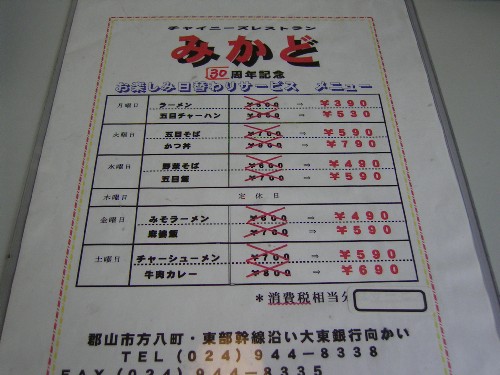 チャイニーズレストラン
みかど
30周年記念
お楽しみ日替わりサービス メニュー
月曜日 ラーメン ⇒ ¥390
五目チャーハン ⇒ ¥530
火曜日 五目そば ¥700 ⇒ ¥590
かつ丼 ¥900 ⇒ ¥790
水曜日 野菜そば ¥600 ⇒ ¥490
五目飯 ¥700 ⇒ ¥590
木曜日 定休日
金曜日 みそラーメン ¥600 ⇒ ¥490
麻婆飯 ¥700 ⇒ ¥590
土曜日 チャーシューメン ¥700 ⇒ ¥590
牛肉カレー ¥800 ⇒ ¥690
*消費税相当分
郡山市方八町・東部幹線沿い大東銀行向かい
TEL(024)944-8338
FAX(024)944-8335